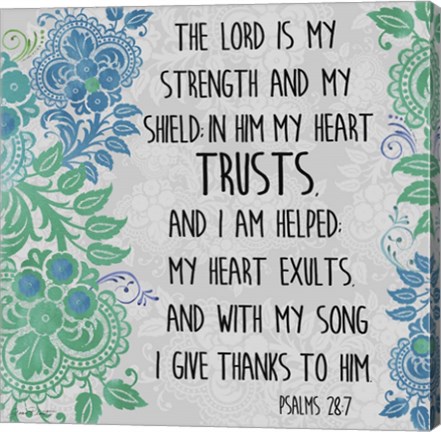 THE LORD IS MY
STRENGTH AND MY
SHIELD; IN HIM MY HEART
TRUSTS,
AND I AM HELPED;
MY HEART EXULTS,
AND WITH MY SONG
I GIVE THANKS TO HIM.
PSALMS 28:7